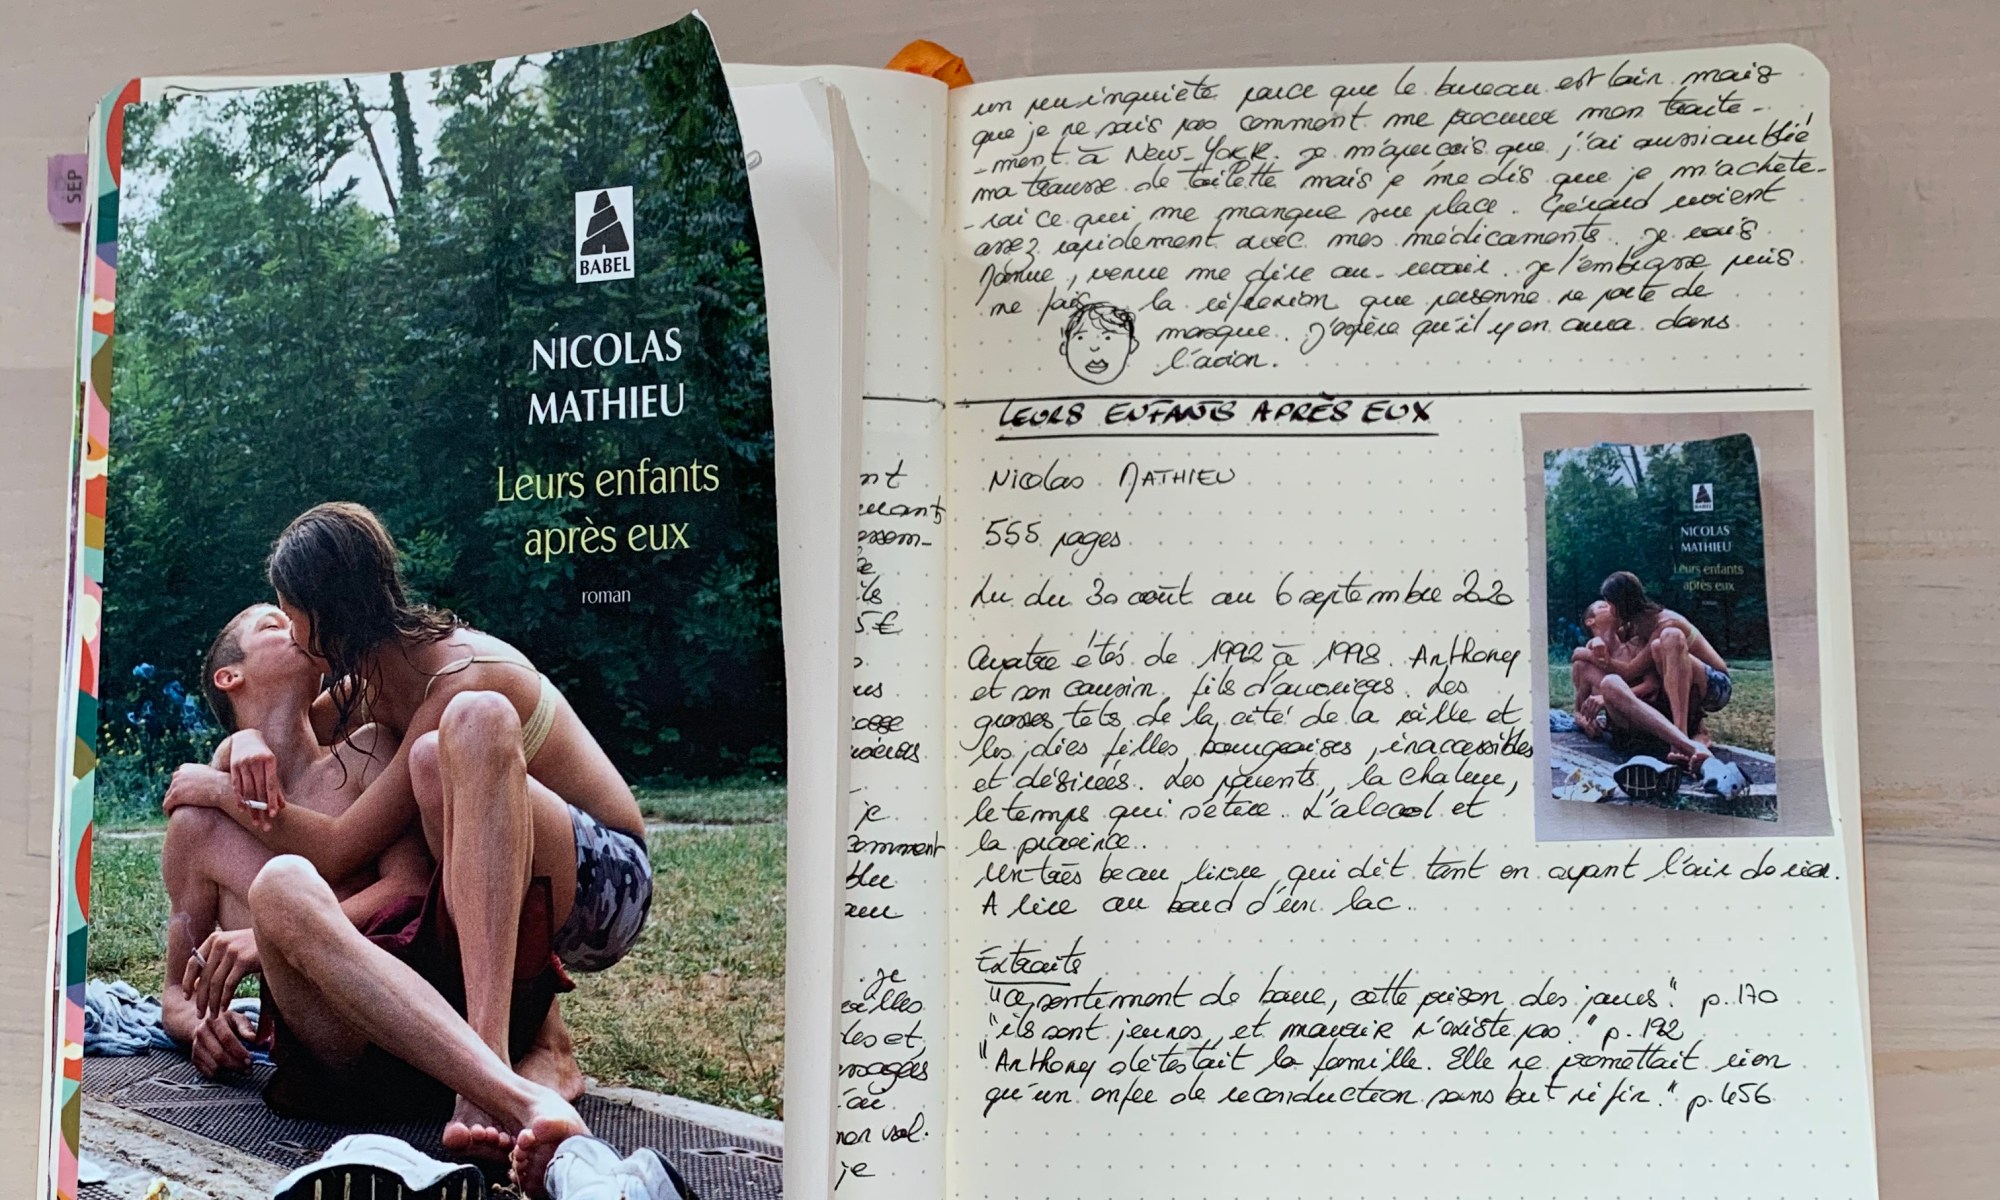 SEP
BABEL
NICOLAS
MATHIEU
Leurs enfants
après eux
roman
un peu inquiète parce que le bureau est loin mais
que je ne sais pas comment me procurer mon traite-
-ment à New-York. Je m'aperçois que j'ai aussi oublié
ma trousse de toilette mais je me dis que je m'achète-
-rai ce qui me manque sur place. Gérard revient
assez rapidement avec mes médicaments. Je vois
venue me dire au-revoir. Je l'embrasse, puis
me fais la réflexion que personne ne porte de
masque. J'espère qu'il y en aura dans
l'avion.
LEURS ENFANTS APRÈS EUX
Nicolas MATHIEU
555 pages
Lu du 30 août au 6 septembre 2020
Quatre étés de 1992 à 1998. Anthony
et son cousin. fils d'ouvriers. Les
grosses têtes de la cité de la ville et
les jolies filles bourgeoises, inaccessibles
et désirées. Les parents, la chaleur,
le temps qui s'étire. L'alcool et
la province..
Un très beau livre qui dit tant en ayant l'air de rien.
A lire au bord d'un lac..
Extraits
"Ce sentiment de bave, cette poison des jours." p.170
"ils sont jeunes, et mourir n'existe pas." p.192
"Anthony détestait la famille. Elle ne promettait rien
qu'un enfer de reconduction sans but ni fin." p.456
NICOLAS
MATHIEU
Leurs enfants
après eux
nt
5€
je
comment
je
et
vol.
je